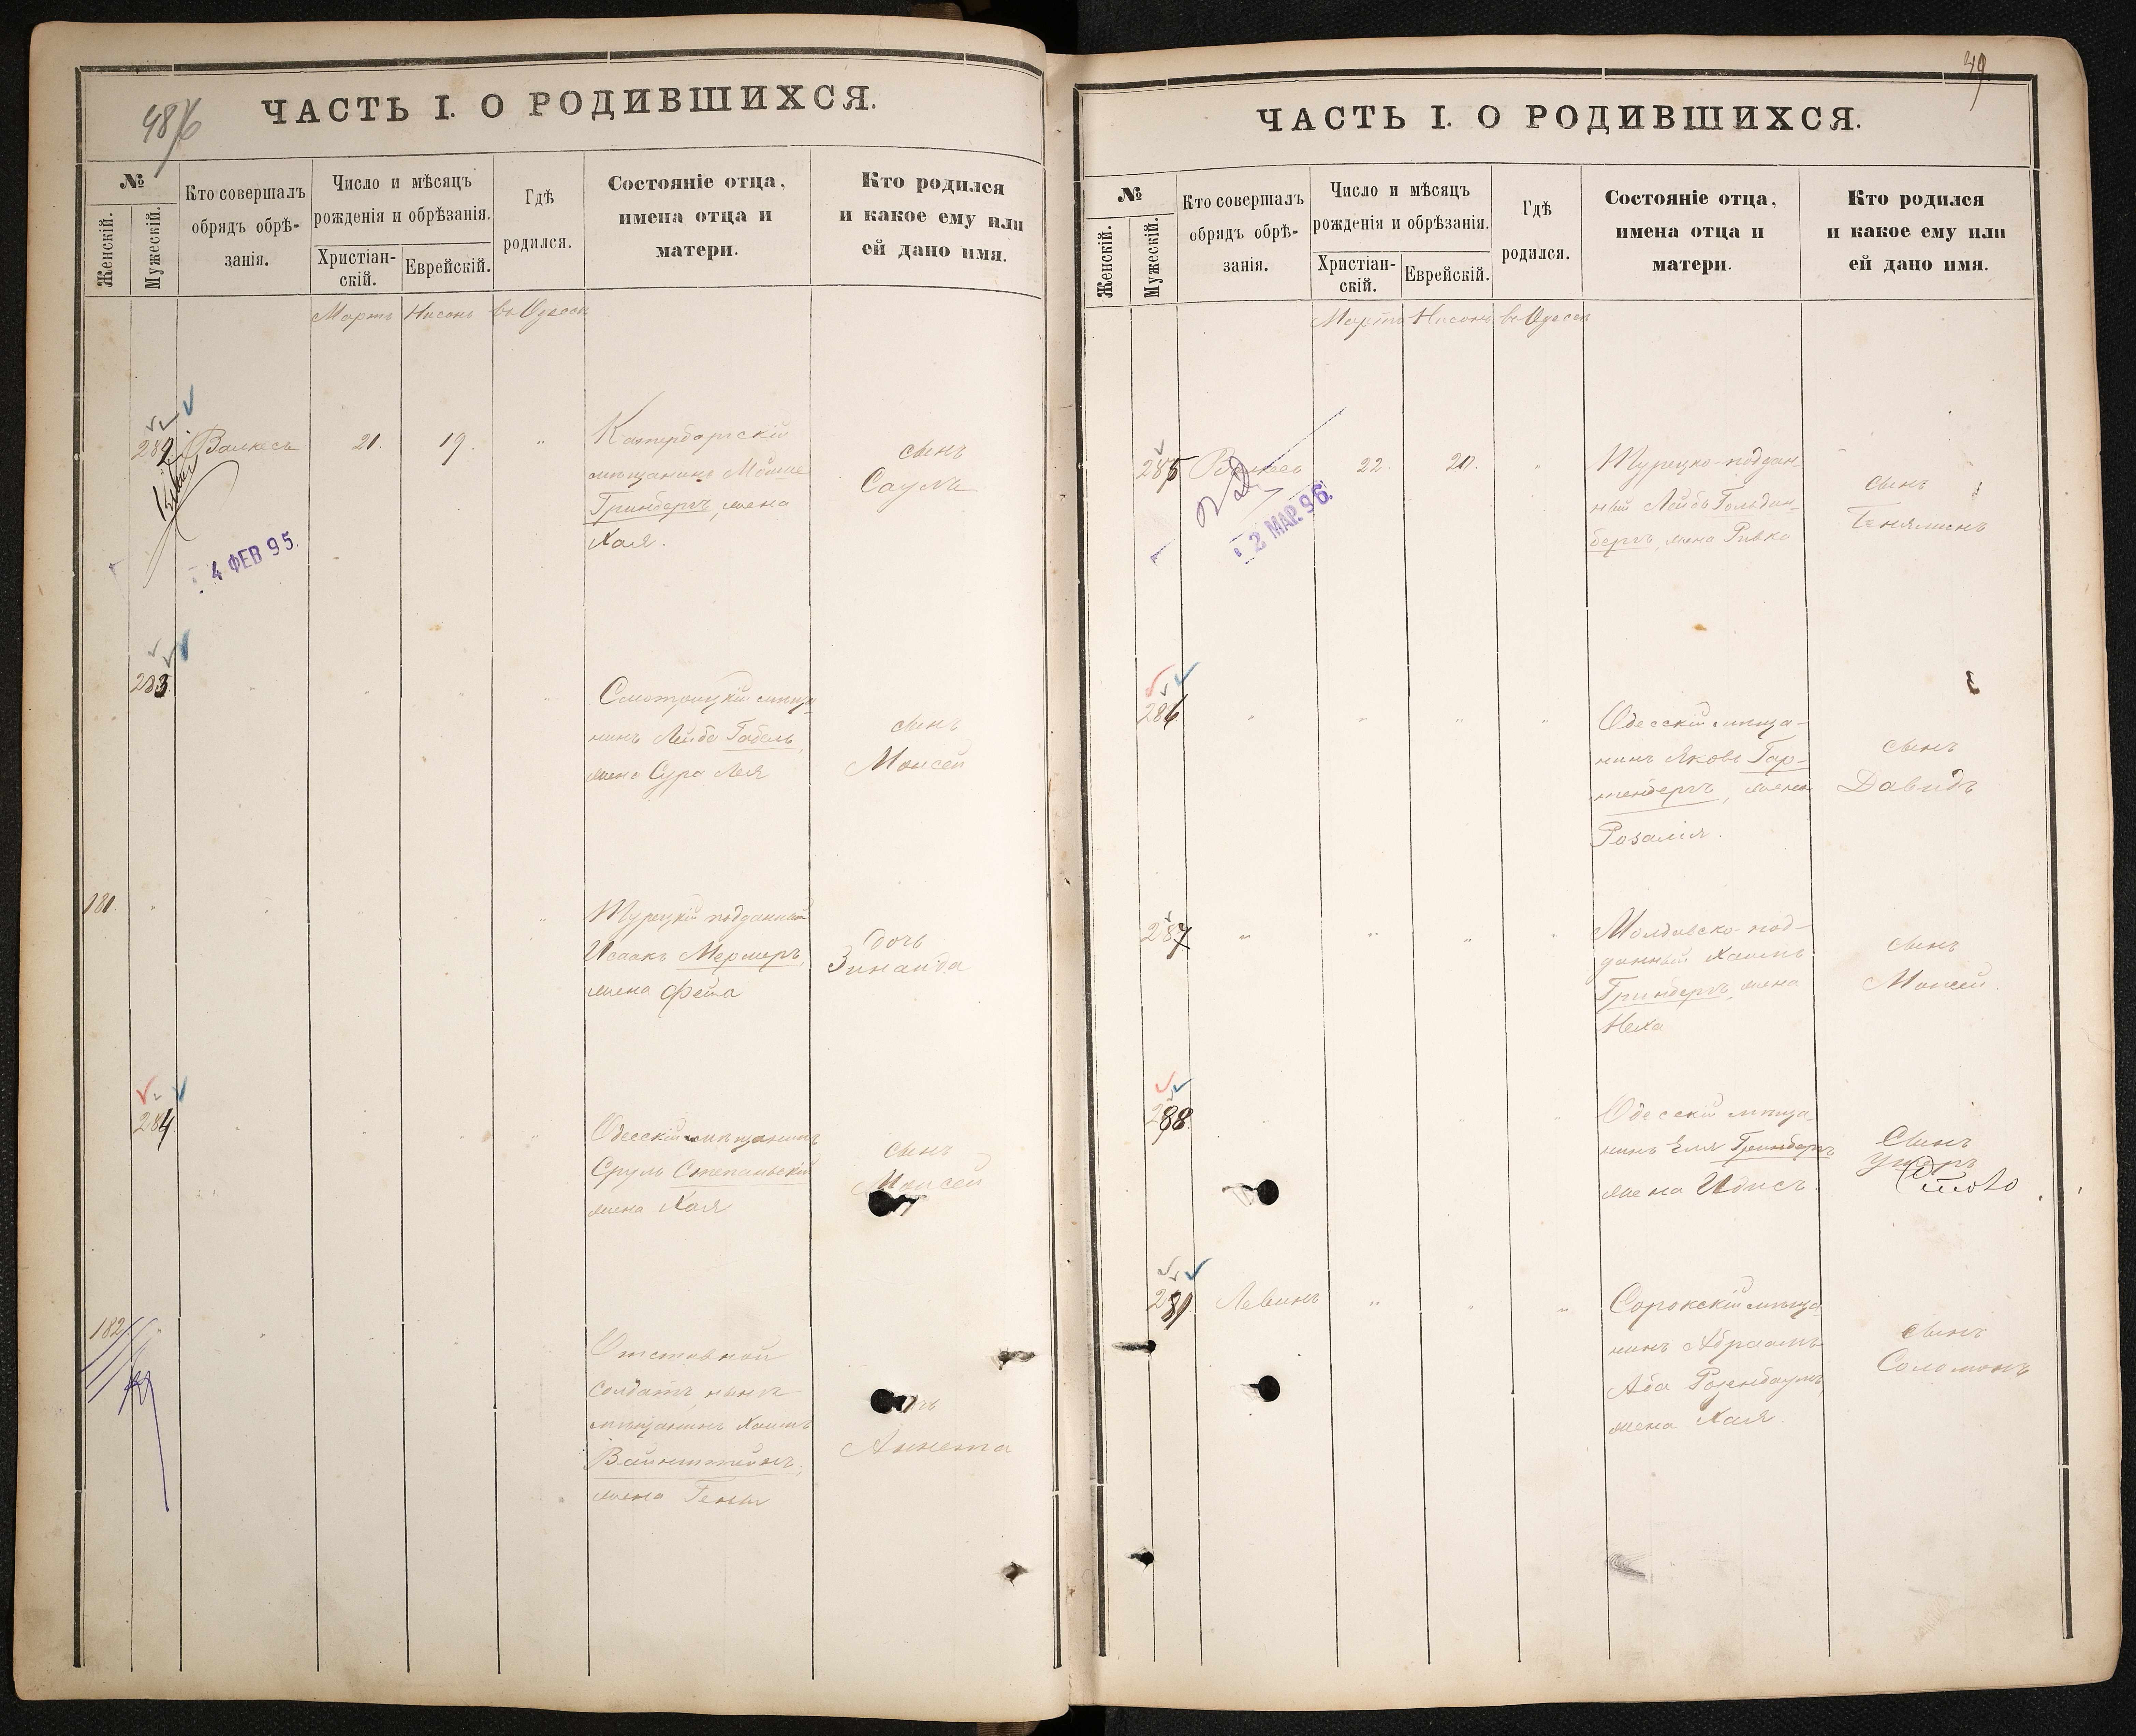 ЧАСТЬ I. О РОДИВШИХСЯ.
№
Женскій.
Мужескій.
Кто совершалъ
обрядъ обрѣ-
занія.
Число и мѣсяцъ
рожденія и обрѣзанія.
Христіан-
скій.
Еврейскій.
Гдѣ
родился.
Состояніе отца,
имена отца и
матери.
Кто родился
и какое ему или
ей дано имя.
Мартъ Нисонъ въ Одессѣ
282 Валкесъ 21. 19. "
мѣщанинъ Мойше
Гринбергъ, жена
Хая.
сынъ
Саулъ
4 ФЕВ 95.
283.
Смотрицкій мѣща-
нинъ Лейба Габель,
жена Сура Лея
сынъ
Моисей
181.
Турецкій подданный
Исаакъ Мермеръ,
жена Фейга
дочь
Зинаида
284.
Одесскій мѣщанинъ
Сруль Степановскій
жена Хая
сынъ
Моисей
182
Отставной
солдатъ, нынѣ
мѣщанинъ Хаимъ
Вайнштейнъ,
жена Геня
Аннета
49.
ЧАСТЬ I. О РОДИВШИХСЯ.
№
Женскій.
Мужескій.
Кто совершалъ
обрядъ обрѣ-
занія.
Число и мѣсяцъ
рожденія и обрѣзанія.
Христіан-
скій.
Еврейскій.
Гдѣ
родился.
Состояніе отца,
имена отца и
матери.
Кто родился
и какое ему или
ей дано имя.
Мартъ Нисонъ въ Одессѣ
285 Валкесъ 22. 20. "
Турецко-поддан-
ный Лейбъ Гольден-
бергъ, жена Ривка
сынъ
Бенялинъ
2 МАР. 96.
286
Одесскій мѣща-
нинъ Яковъ Гар-
тенбергъ, жена
Розалія.
сынъ
Давидъ
287
Молдавско-под-
данный Хаимъ
Гринбергъ, жена
Неха
сынъ
Моисей
288.
Одесскій мѣща-
нинъ Еля Гринбергъ
жена Идисъ.
Сынъ
Ушеръ
Левинъ
Сорокскій мѣща-
нинъ Абрамъ-
Аба Розенбаумъ,
жена Хая.
сынъ
Соломонъ